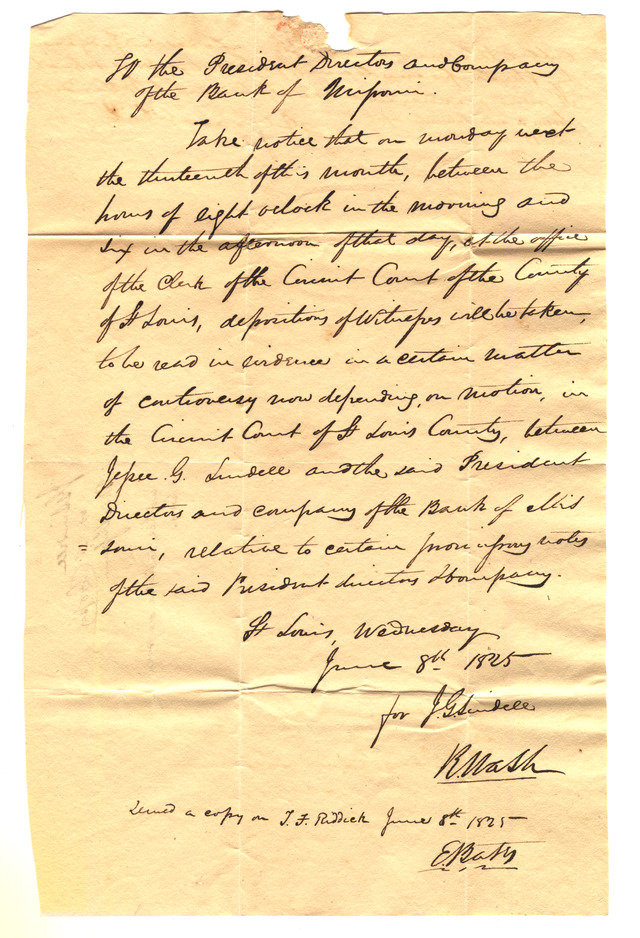 To the President Directors and Company
of the Bank of Missouri.
Take notice that on monday next
the thirteenth of this month, between the
hours of eight oclock in the morning and
six in the afternoon of that day, at the office
of the clerk of the Circuit Court of the County
of St Louis, depositions of Witnesses will be taken,
to be read in evidence in a certain matter
of controversy now depending, on motion, in
the Circuit Court of St Louis County, between
Jesse G. Lindell and the said President
Directors and company of the Bank of Mis
= souri, relative to certain promissory notes
of the said President directors & company.
St Louis, Wednesday
June 8th 1825
for J.G. Lindell
R. Wash
Served a copy on T. F. Riddick June 8th 1825
E. Bates